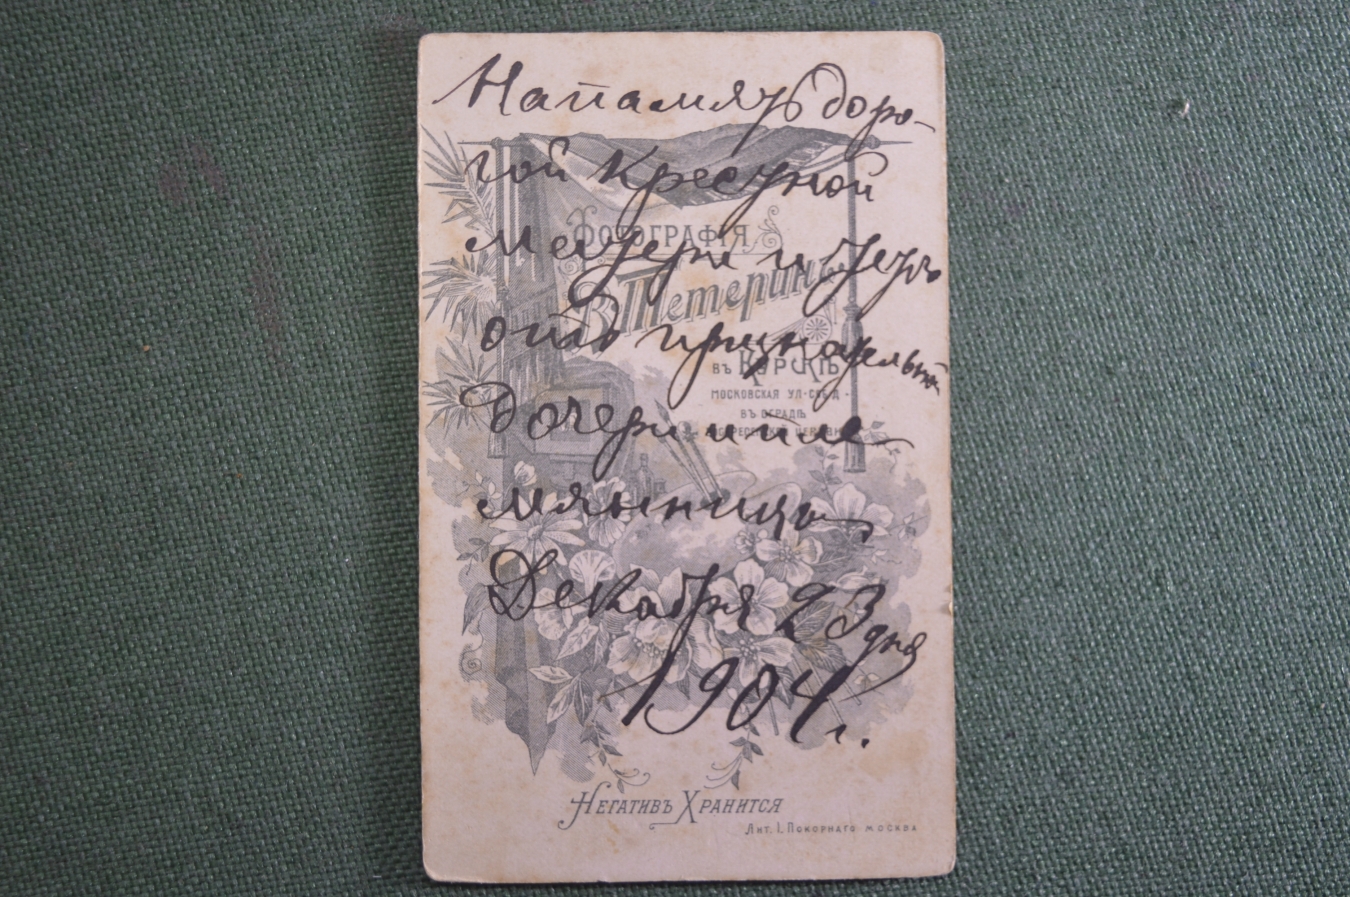 На память доро-
гой крестной
матери и тети
отъ признательной
дочери и пле
мянницы
Декабря 23 дня
1904 г.
ФОТОГРАФІЯ
В. Тетеринъ
ВЪ КУРСКѢ
МОСКОВСКАЯ УЛ-
ВЪ ОГРАДѢ
НЕГАТИВЪ ХРАНИТСЯ
Лит. І. Покорнаго москва